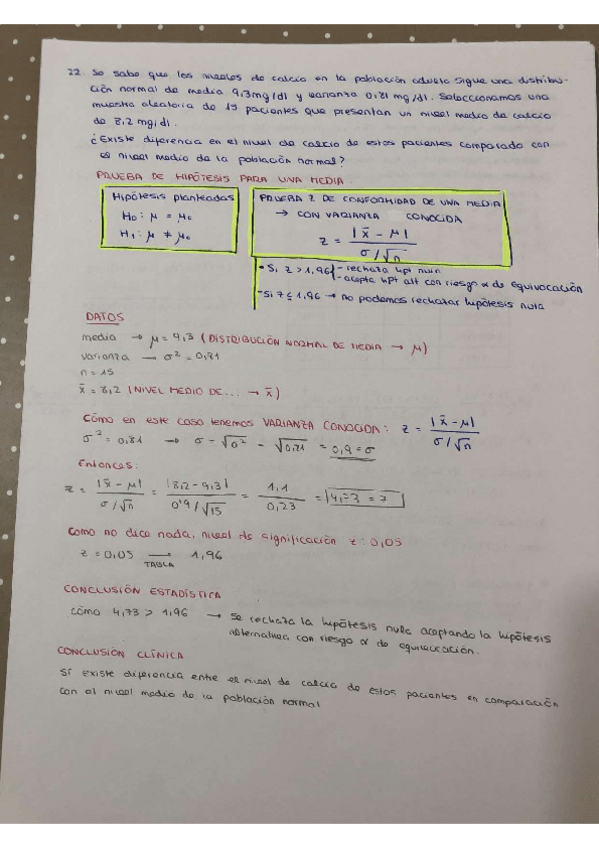 22. Se sabe que los niveles de calcio en la población adulta sigue una distribu-
ción normal de media 9,3mg/dl y varianza 0,81 mg/dl. Seleccionamos una
muestra aleatoria de 15 pacientes que presentan un nivel medio de calcio
de 8,2 mg/dl.
¿Existe diferencia en el nivel de calcio de estos pacientes comparado con
el nivel medio de la población normal?
PRUEBA DE HIPÓTESIS PARA UNA MEDIA.
Hipótesis planteadas
H₀: μ = μ₀
H₁: μ ≠ μ₀
PRUEBA Z DE CONFORMIDAD DE UNA MEDIA
→ CON VARIANZA CONOCIDA
z = |x̄ - μ| / σ/√n
- Si z > 1,96 - rechaza hpt nula
- acepta hpt alt con riesgo α de equivocación
- Si z ≤ 1,96 → no podemos rechazar hipótesis nula
DATOS
media → μ = 9,3 (DISTRIBUCIÓN NORMAL DE MEDIA → μ)
varianza → σ² = 0,81
n = 15
x̄ = 8,2 (NIVEL MEDIO DE... → x̄)
Cómo en este caso tenemos VARIANZA CONOCIDA: z = |x̄ - μ| / σ/√n
σ² = 0,81 → σ = √σ² = √0,81 = 0,9 = σ
Entonces:
z = |x̄ - μ| / σ/√n = |8,2 - 9,3| / 0'9/√15 = 1,1 / 0,23 = 4,73 = z
Como no dice nada, nivel de significación z: 0,05
z = 0,05 → TABLA 1,96
CONCLUSIÓN ESTADÍSTICA
cómo 4,73 > 1,96 → se rechaza la hipótesis nula aceptando la hipótesis
alternativa con riesgo α de equivocación.
CONCLUSIÓN CLÍNICA
Sí existe diferencia entre el nivel de calcio de estos pacientes en comparación
con el nivel medio de la población normal